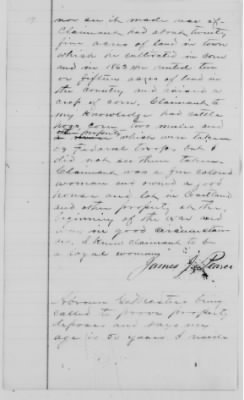 nor see it made use of.
Claimant had about twenty
five acres of land in town
which he cultivated in corn
and in 1863 we rented ten
or fifteen acres of land in
the country and raised a
crop of corn. Claimant to
my Knowledge had cattle
hogs corn, two mules and
other property which were taken
by Federal troops but I
did not see them taken.
Claimant was a free colored
woman and owned a good
house and lot in
and other property at the
beginning of the war and
was in good circumstan
ces, I knew claimant to be
a loyal woman.
James J. Pearce
Abram being
called to prove property
deposes and says my
age is 50 years I reside